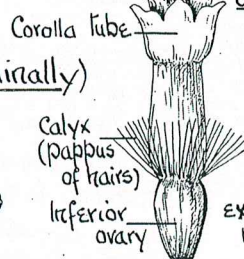 Corolla tube
inally)
Calyx
(pappus
of hairs)
Inferior
ovary